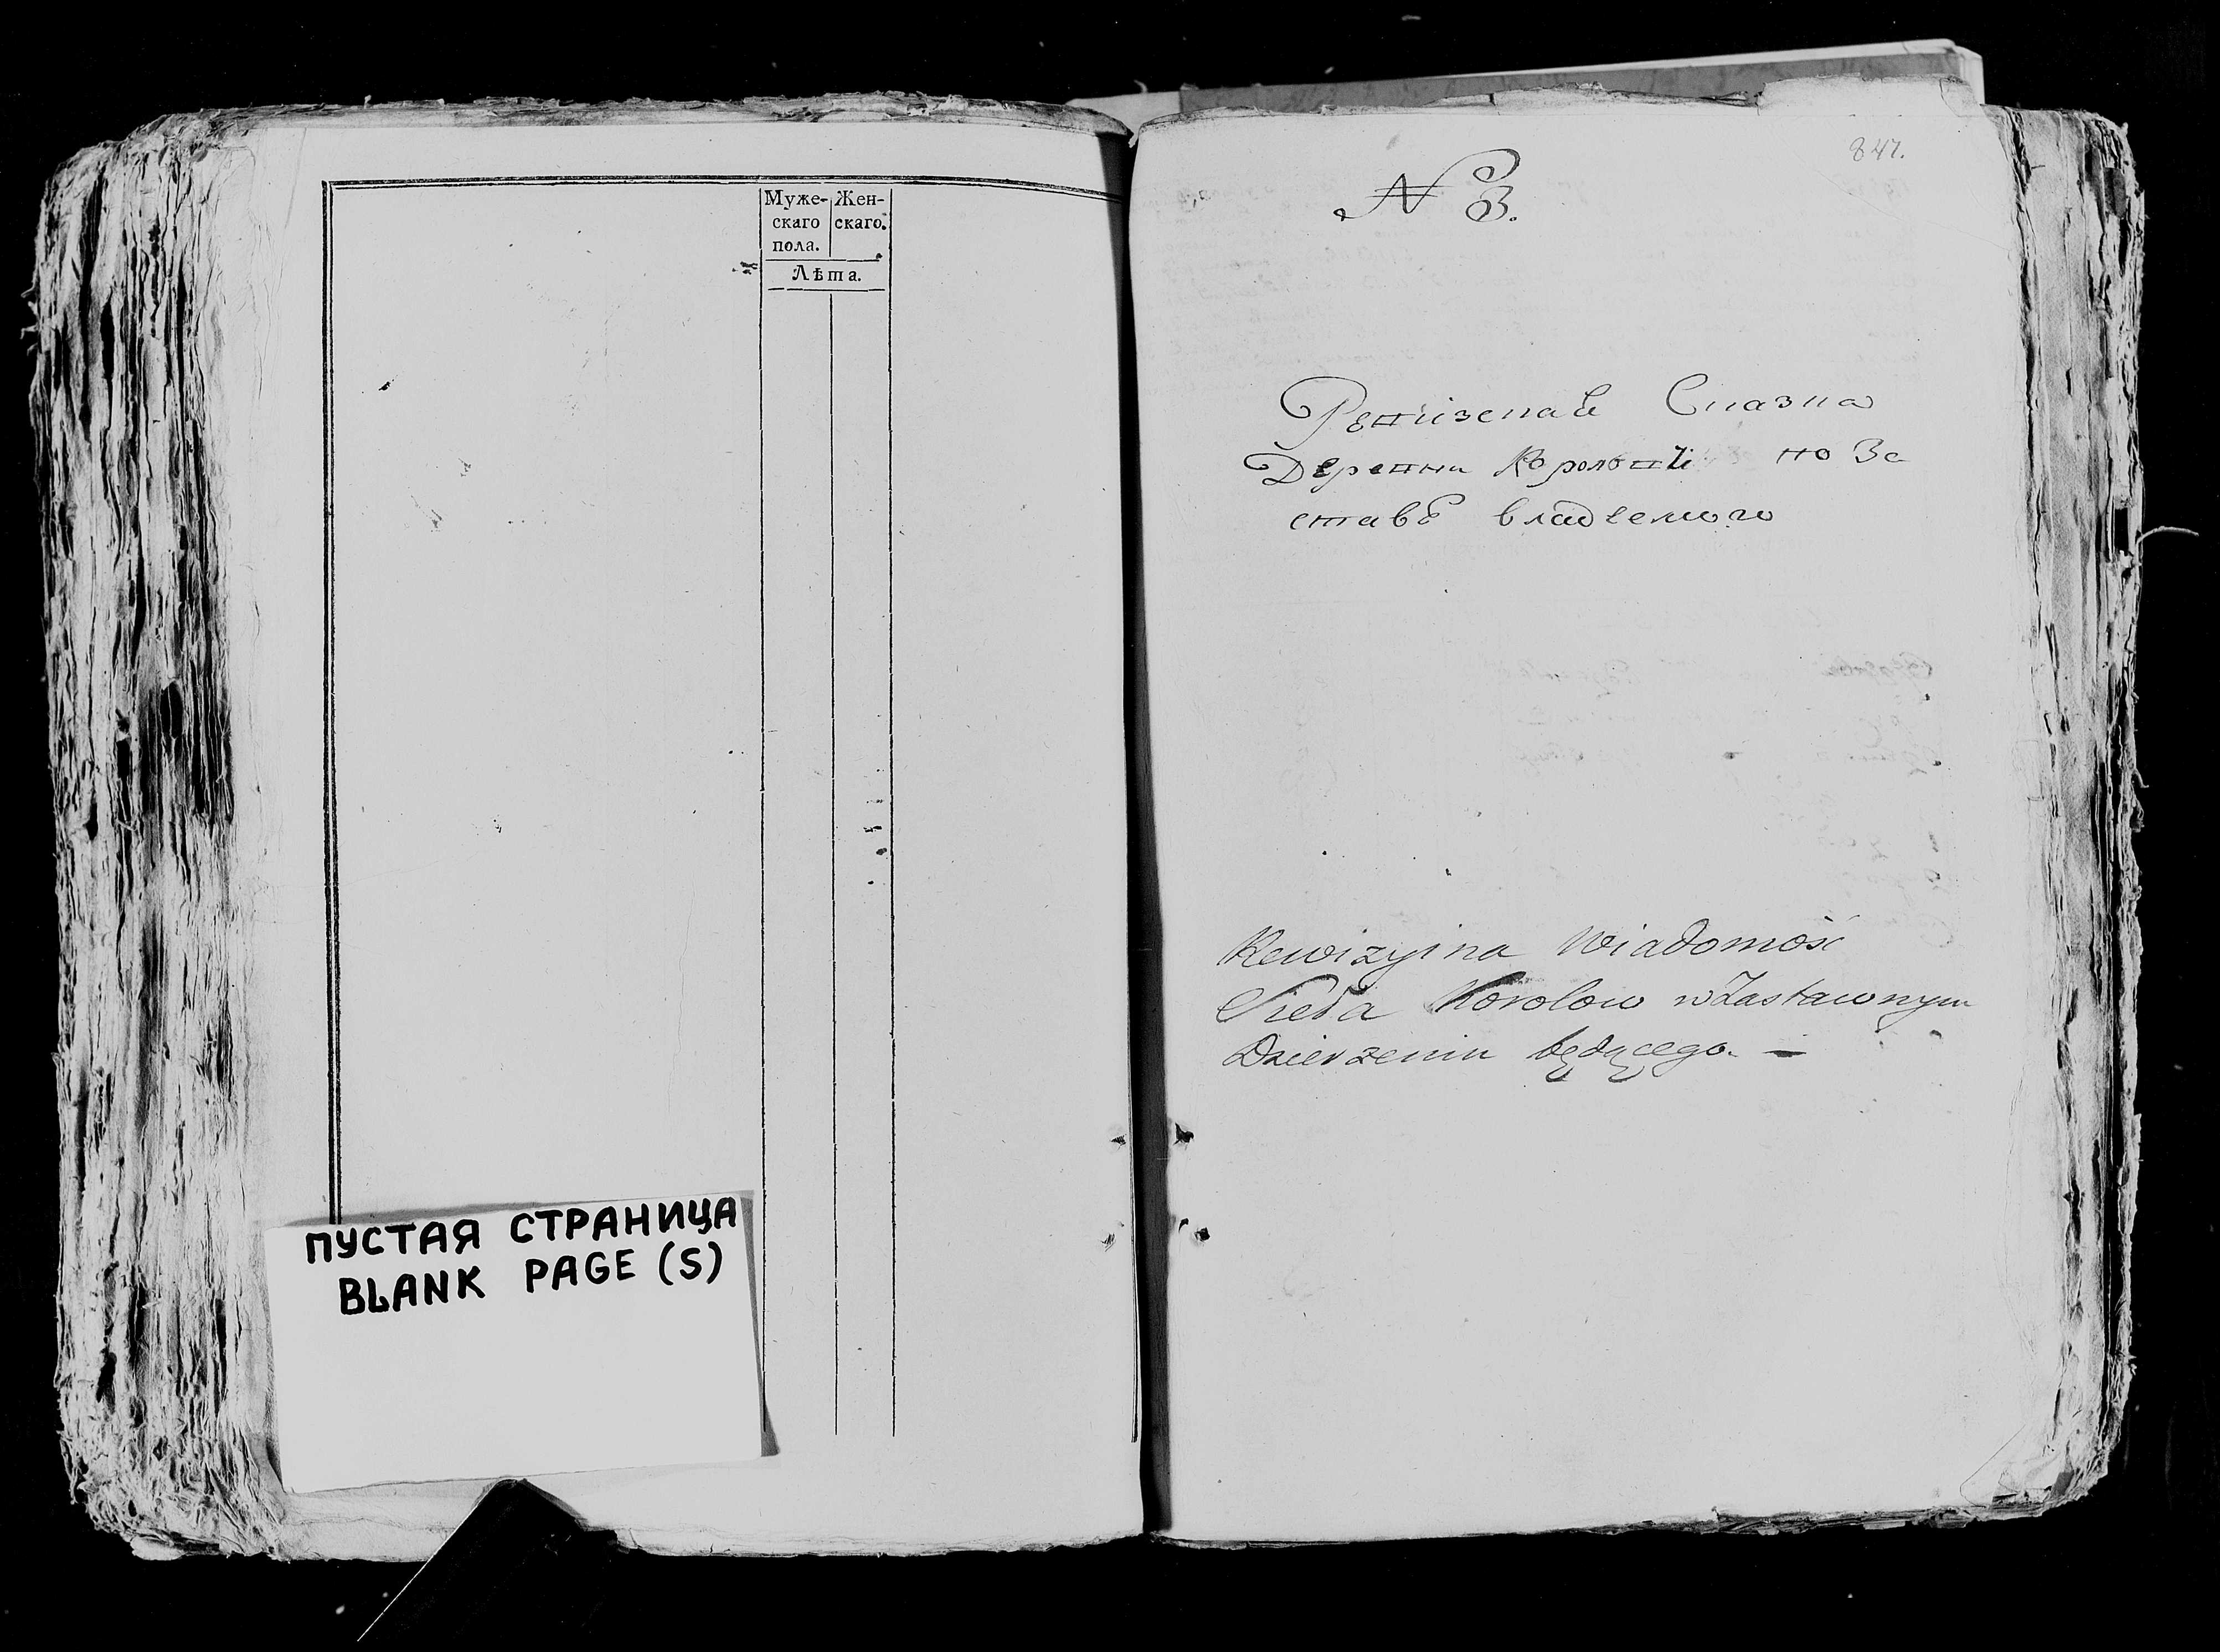 Муже-
скаго
пола.
Жен-
скаго.
Лѣта.
ПУСТАЯ СТРАНИЦА
BLANK PAGE (S)
847.
№ 3.
Ревизская Сказка
Деревни по За
ставѣ владеемого
Rewizyina Wiadomość
Sieła Korolow w Zastawnym
Dzierzeniu będącego. —